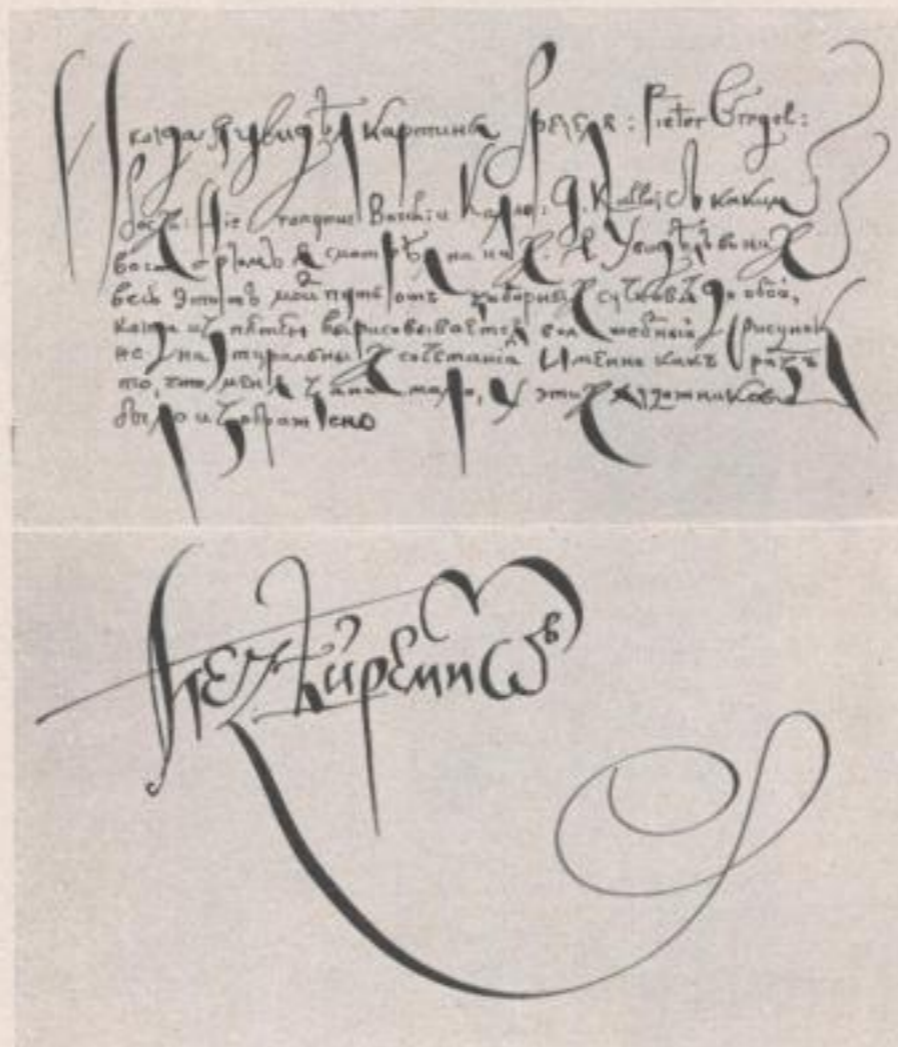 И когда я увидѣл картины Брегеля: Pieter Bregel:
Босха: Hieronymus Bosch: и Калло: J. Kallot: с каким
восторгом я смотрѣл на них. Я увидѣл в них
весь этот мой путь от узорных сучков до обой,
когда из пятен вырисовывается волшебный рисунок
не натуральных сочетанiй Именно какъ раз
то, что меня занимало, у этих художников
было изображено
Алексѣй Ремизов